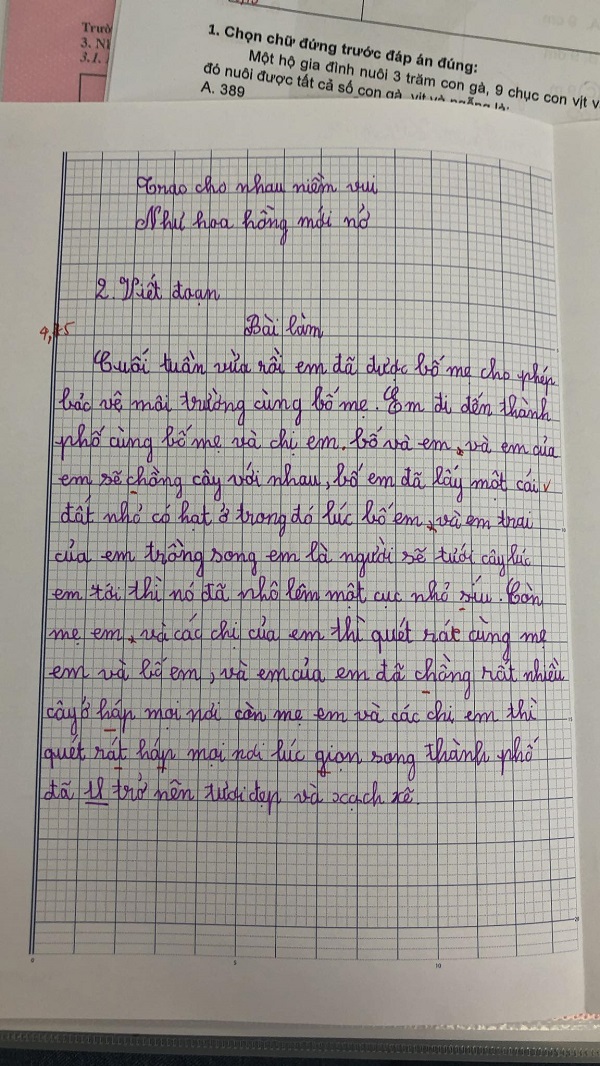 Trườ
3. NI
3.1.
1. Chọn chữ đứng trước đáp án đúng:
Một hộ gia đình nuôi 3 trăm con gà, 9 chục con vịt v
đó nuôi được tất cả số con gà, vịt và ngỗng là:
A. 389
Trao cho nhau niềm vui
Như hoa hồng mới nở
2. Viết đoạn
Bài làm
4,75
Cuối tuần vừa rồi em đã được bố mẹ cho phép
bảo vệ môi trường cùng bố mẹ. Em đi đến thành
phố cùng bố mẹ và chị em. bố và em, và em của
em sẽ chồng cây với nhau, bố em đã lấy một cái
đất nhỏ có hạt ở trong đó lúc bố em, và em trai
của em trồng song em là người sẽ tưới cây lúc
em tới thì nó đã nhô lên một cục nhỏ síu. Còn
mẹ em, và các chị của em thì quét rát cùng mẹ
em và bố em, và em của em đã chồng rất nhiều
cây ở háp mọi nơi còn mẹ em và các chị em thì
quét rát háp mọi nơi lúc gion song thành phố
đã trở nên tươi đẹp và xạch xẽ.